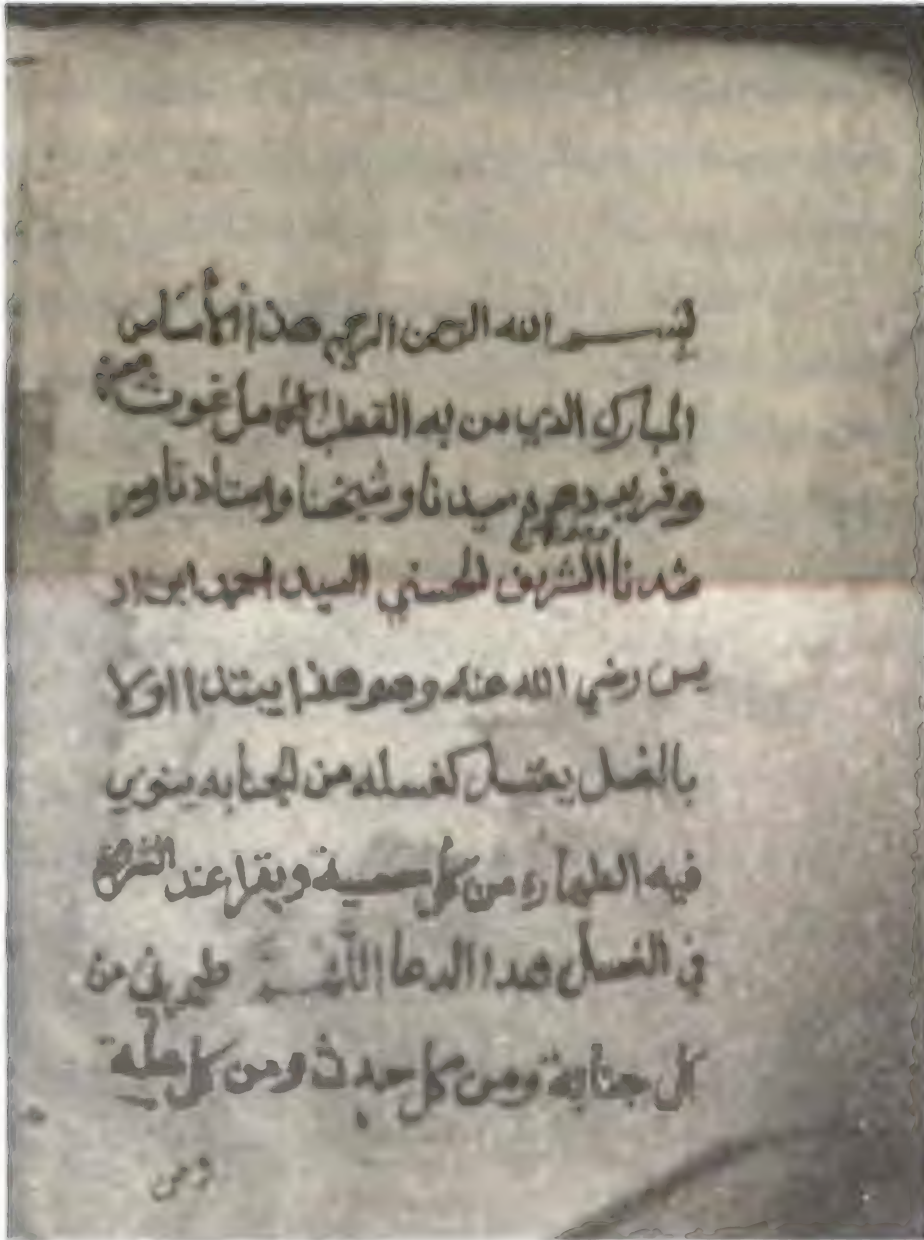 بسم الله الرحمن الرحيم هذا الأساس
المبارك الذي من به القطب الكامل غوث
وفريد دهره سيدنا وشيخنا واستاذنا ومر
شدنا الشريف الحسني السيد احمد ابن اد
يس رضي الله عنه وهو هذا يبتدا اولا
بالغسل يغتسل كغسله من الجنابه ينوي
فيه الطهاره من كل ويقرا عند
في الغسل هذا الدعا اللهم طهرني من
كل جنابة ومن كل حدث ومن كل علة
ومن